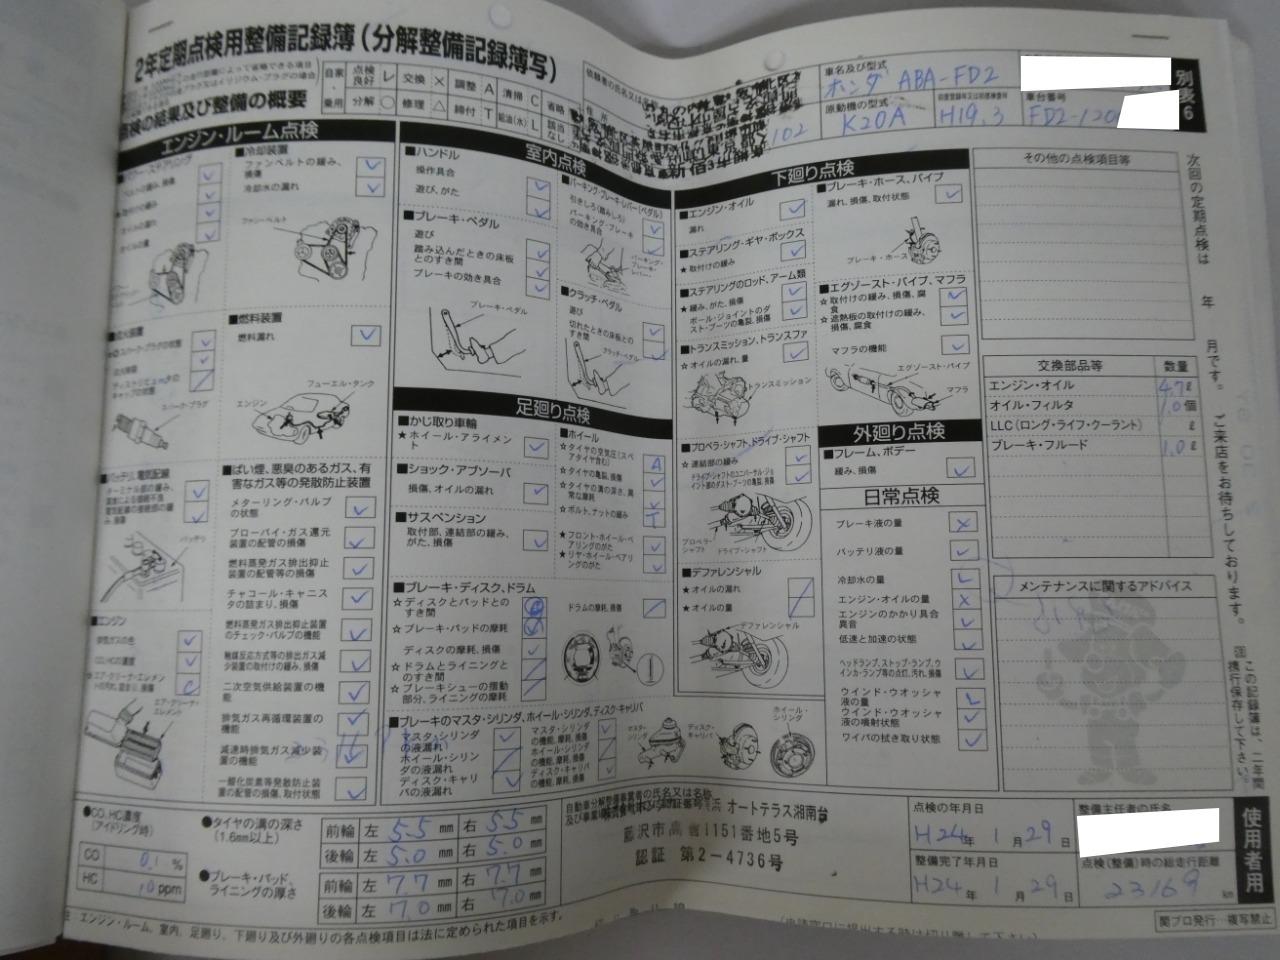 2年定期点検用整備記録簿(分解整備記録簿写)
点検の結果及び整備の概要
自家・乗用
点検良好 レ 交換 × 調整 A 清掃 C 省略
分解 ○ 修理 △ 締付 T 給油(水) L 該当なし
依頼者の氏名又は
住所
102
車名及び型式
ホンダ ABA-FD2
原動機の型式
K20A
H19.3
車台番号
FD2-120
別表6
エンジン・ルーム点検
■パワー・ステアリング
ベルトの緩み、損傷
★取付けの緩み
オイルの漏れ
オイルの量
■冷却装置
ファンベルトの緩み、損傷
冷却水の漏れ
ファンベルト
■点火装置
スパーク・プラグの状態
点火時期
ディストリビュータのキャップの状態
スパーク・プラグ
■燃料装置
燃料漏れ
フューエル・タンク
エンジン
■バッテリ、電気配線
ターミナル部の緩み、腐食による接続不良
電気配線の接続部の緩み、損傷
バッテリ
■エンジン
排気ガスの色
CO、HCの濃度
★エア・クリーナ・エレメントの汚れ、詰まり、損傷 C
エア・クリーナ・エレメント
■ばい煙、悪臭のあるガス、有害なガス等の発散防止装置
メターリング・バルブの状態
ブローバイ・ガス還元装置の配管の損傷
燃料蒸発ガス排出抑止装置の配管等の損傷
チャコール・キャニスタの詰まり、損傷
燃料蒸発ガス排出抑止装置のチェック・バルブの機能
触媒反応方式等の排出ガス減少装置の取付けの緩み、損傷
二次空気供給装置の機能
排気ガス再循環装置の機能
減速時排気ガス減少装置の機能
一酸化炭素等発散防止装置の配管の損傷、取付状態
室内点検
■ハンドル
操作具合
遊び、がた
■ブレーキ・ペダル
遊び
踏み込んだときの床板とのすき間
ブレーキの効き具合
ブレーキ・ペダル
■パーキング・ブレーキ・レバー(ペダル)
引きしろ(踏みしろ)
パーキング・ブレーキの効き具合
パーキング・ブレーキ・レバー
■クラッチ・ペダル
遊び
切れたときの床板とのすき間
クラッチ・ペダル
足廻り点検
■かじ取り車輪
★ホイール・アライメント
■ショック・アブソーバ
損傷、オイルの漏れ
■サスペンション
取付部、連結部の緩み、がた、損傷
■ホイール
☆タイヤの空気圧(スペアタイヤ含む) A
☆タイヤの亀裂、損傷
☆タイヤの溝の深さ、異常な摩耗
★ボルト、ナットの緩み T
★フロント・ホイール・ベアリングのがた
★リヤ・ホイール・ベアリングのがた
■ブレーキ・ディスク、ドラム
☆ディスクとパッドとのすき間
☆ブレーキ・パッドの摩耗
ディスクの摩耗、損傷
☆ドラムとライニングとのすき間
☆ブレーキシューの摺動部分、ライニングの摩耗
ドラムの摩耗、損傷
■ブレーキのマスタ・シリンダ、ホイール・シリンダ、ディスク・キャリパ
マスタ・シリンダの液漏れ
ホイール・シリンダの液漏れ
ディスク・キャリパの液漏れ
マスタ・シリンダの機能、摩耗、損傷
ホイール・シリンダの機能、摩耗、損傷
ディスク・キャリパの機能、摩耗、損傷
マスタ・シリンダ
ディスク・キャリパ
ホイール・シリンダ
下廻り点検
■エンジン・オイル
漏れ
■ステアリング・ギヤ・ボックス
★取付けの緩み
■ステアリングのロッド、アーム類
★緩み、がた、損傷
ボール・ジョイントのダスト・ブーツの亀裂、損傷
■トランスミッション、トランスファ
☆オイルの漏れ、量
トランスミッション
■プロペラ・シャフト、ドライブ・シャフト
☆連結部の緩み
ドライブ・シャフトのユニバーサル・ジョイント部のダスト・ブーツの亀裂、損傷
プロペラ・シャフト
ドライブ・シャフト
■デファレンシャル
★オイルの漏れ
★オイルの量
デファレンシャル
■ブレーキ・ホース、パイプ
漏れ、損傷、取付状態
ブレーキ・ホース
■エグゾースト・パイプ、マフラ
☆取付けの緩み、損傷、腐食
☆遮熱板の取付けの緩み、損傷、腐食
マフラの機能
エグゾースト・パイプ
マフラ
外廻り点検
■フレーム、ボデー
緩み、損傷
日常点検
ブレーキ液の量 ×
バッテリ液の量
冷却水の量 L
エンジン・オイルの量 ×
エンジンのかかり具合
異音
低速と加速の状態
ヘッドランプ、ストップ・ランプ、ウインカ・ランプ等の点灯、汚れ、損傷
ウインド・ウオッシャ液の量 L
ウインド・ウオッシャ液の噴射状態
ワイパの拭き取り状態
その他の点検項目等
交換部品等 数量
エンジン・オイル 4.7 ℓ
オイル・フィルタ 1.0 個
LLC(ロング・ライフ・クーラント) ℓ
ブレーキ・フルード 1.0 ℓ
メンテナンスに関するアドバイス
次回の定期点検は 年 月です。ご来店をお待ちしております。
この記録簿は、二年間携行保存して下さい。
●CO、HC濃度(アイドリング時)
CO 0.1 %
HC 10 ppm
●タイヤの溝の深さ(1.6mm以上)
前輪 左 5.5 mm 右 5.5 mm
後輪 左 5.0 mm 右 5.0 mm
●ブレーキ・パッド、ライニングの厚さ
前輪 左 7.7 mm 右 7.7 mm
後輪 左 7.0 mm 右 7.0 mm
自動車分解整備事業者の氏名又は名称
オートテラス湘南台
藤沢市高倉1151番地5号
認証 第2-4736号
点検の年月日
H24年 1月 29日
整備完了年月日
H24年 1月 29日
整備主任者の氏名
点検(整備)時の総走行距離
23169 km
使用者用
注 エンジン・ルーム、室内、足廻り、下廻り及び外廻りの各点検項目は法に定められた項目を示す。
関プロ発行・複写禁止